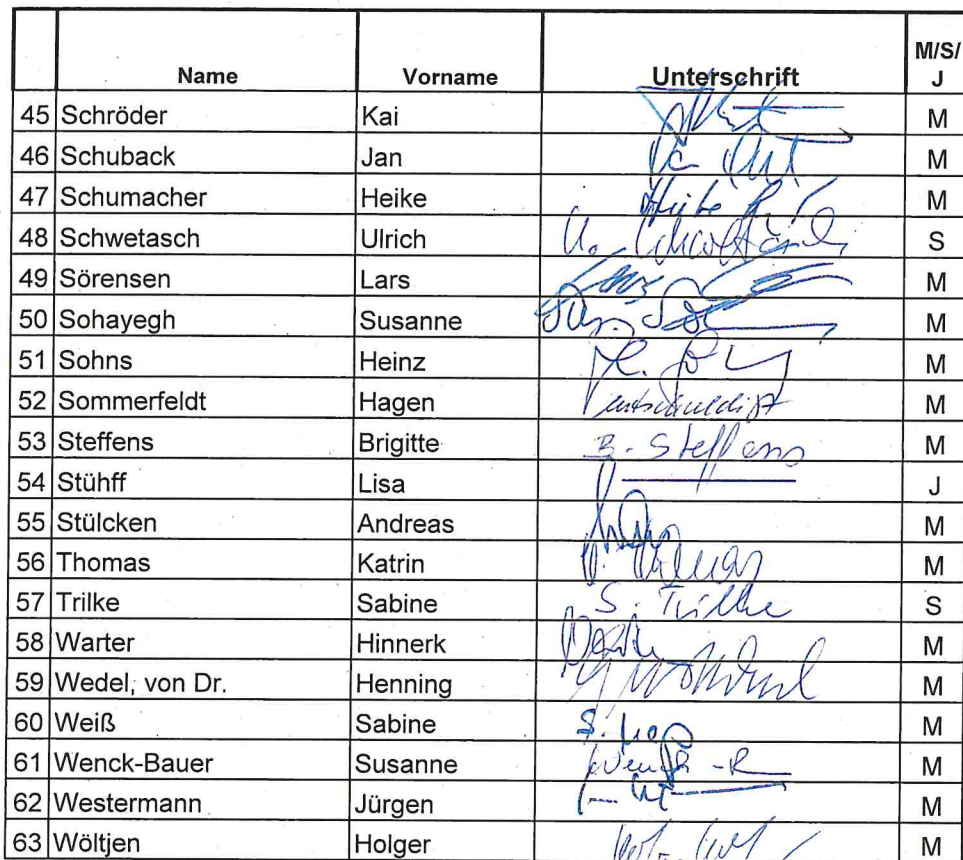 Name Vorname Unterschrift M/S/
J
45 Schröder Kai M
46 Schuback Jan M
47 Schumacher Heike Heike M
48 Schwetasch Ulrich U. Schwetasch S
49 Sörensen Lars Lars M
50 Sohayegh Susanne M
51 Sohns Heinz H. M
52 Sommerfeldt Hagen entschuldigt M
53 Steffens Brigitte B. Steffens M
54 Stühff Lisa J
55 Stülcken Andreas M
56 Thomas Katrin Thomas M
57 Trilke Sabine S. Trilke S
58 Warter Hinnerk M
59 Wedel, von Dr. Henning M
60 Weiß Sabine S. M
61 Wenck-Bauer Susanne M
62 Westermann Jürgen M
63 Wöltjen Holger M